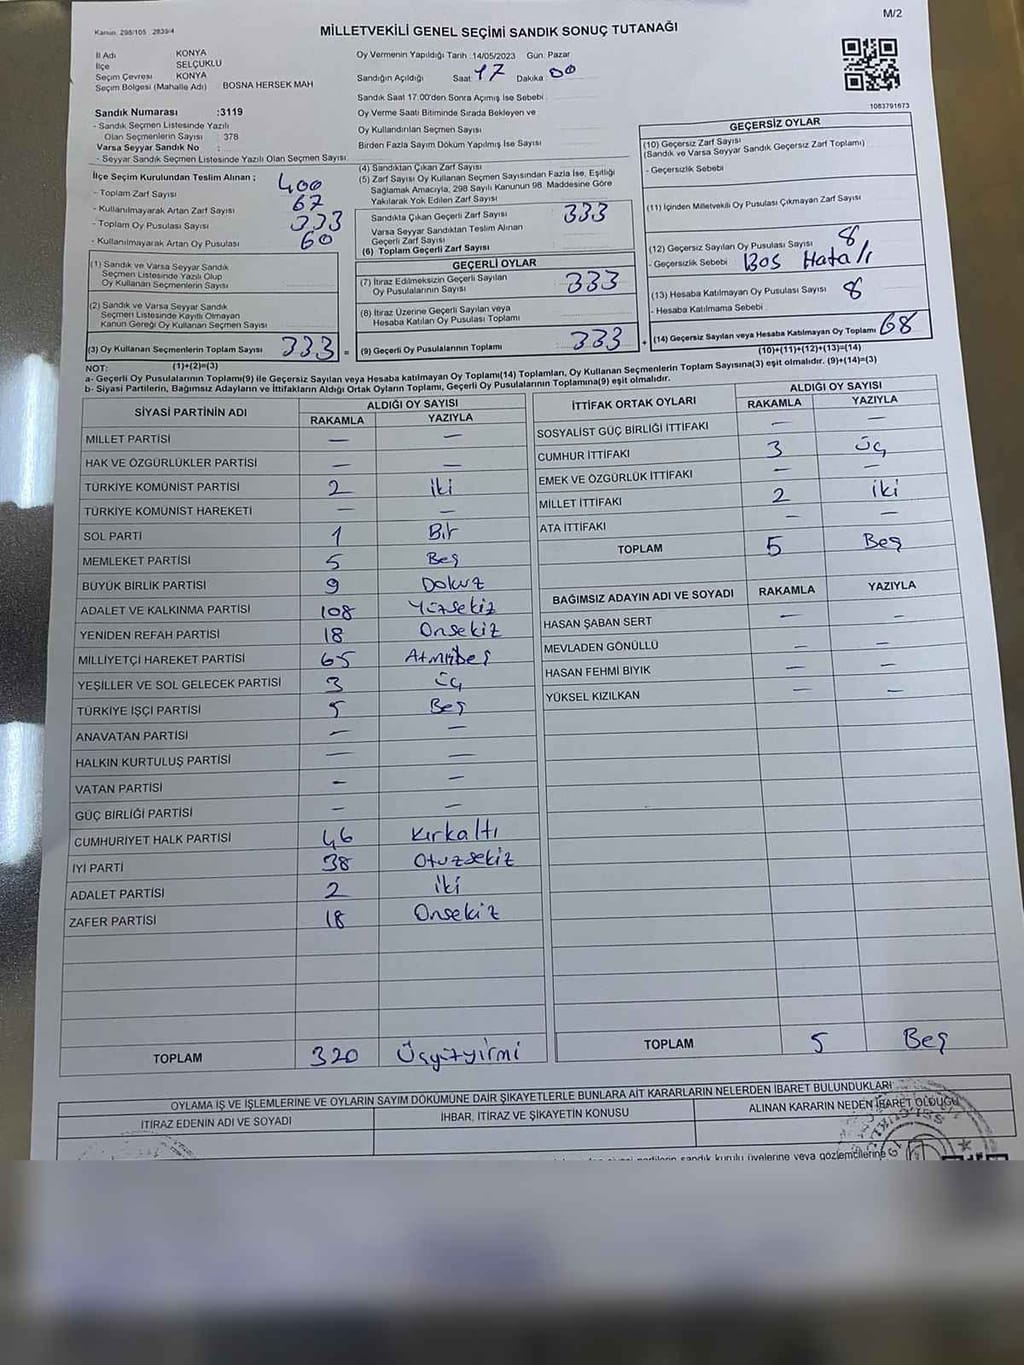 M/2
Kanun: 298/105 2839/4
MİLLETVEKİLİ GENEL SEÇİMİ SANDIK SONUÇ TUTANAĞI
İl Adı KONYA
İlçe SELÇUKLU
Seçim Çevresi KONYA
Seçim Bölgesi (Mahalle Adı) BOSNA HERSEK MAH
Sandık Numarası :3119
- Sandık Seçmen Listesinde Yazılı
Olan Seçmenlerin Sayısı : 378
Varsa Seyyar Sandık No :
- Seyyar Sandık Seçmen Listesinde Yazılı Olan Seçmen Sayısı
İlçe Seçim Kurulundan Teslim Alınan ;
- Toplam Zarf Sayısı 400
- Kullanılmayarak Artan Zarf Sayısı 67
- Toplam Oy Pusulası Sayısı 333
- Kullanılmayarak Artan Oy Pusulası 60
(1) Sandık ve Varsa Seyyar Sandık
Seçmen Listesinde Yazılı Olup
Oy Kullanan Seçmenlerin Sayısı
(2) Sandık ve Varsa Seyyar Sandık
Seçmen Listesinde Kayıtlı Olmayan
Kanun Gereği Oy Kullanan Seçmen Sayısı
(3) Oy Kullanan Seçmenlerin Toplam Sayısı 333 =
(1)+(2)=(3)
Oy Vermenin Yapıldığı Tarih :14/05/2023 Gün: Pazar
Sandığın Açıldığı Saat 17 Dakika 00
Sandık Saat 17:00'den Sonra Açımış İse Sebebi :
Oy Verme Saati Bitiminde Sırada Bekleyen ve
Oy Kullandırılan Seçmen Sayısı
Birden Fazla Sayım Döküm Yapılmış İse Sayısı
(4) Sandıktan Çıkan Zarf Sayısı
(5) Zarf Sayısı Oy Kullanan Seçmen Sayısından Fazla İse, Eşitliği
Sağlamak Amacıyla, 298 Sayılı Kanunun 98. Maddesine Göre
Yakılarak Yok Edilen Zarf Sayısı
Sandıkta Çıkan Geçerli Zarf Sayısı 333
Varsa Seyyar Sandıktan Teslim Alınan
Geçerli Zarf Sayısı
(6) Toplam Geçerli Zarf Sayısı
GEÇERLİ OYLAR
(7) İtiraz Edilmeksizin Geçerli Sayılan
Oy Pusulalarının Sayısı 333
(8) İtiraz Üzerine Geçerli Sayılan veya
Hesaba Katılan Oy Pusulası Toplamı
(9) Geçerli Oy Pusulalarının Toplamı 333 +
1083791673
GEÇERSİZ OYLAR
(10) Geçersiz Zarf Sayısı
(Sandık ve Varsa Seyyar Sandık Geçersiz Zarf Toplamı)
- Geçersizlik Sebebi
(11) İçinden Milletvekili Oy Pusulası Çıkmayan Zarf Sayısı
(12) Geçersiz Sayılan Oy Pusulası Sayısı 8
- Geçersizlik Sebebi Boş Hatalı
(13) Hesaba Katılmayan Oy Pusulası Sayısı 8
- Hesaba Katılmama Sebebi :
(14) Geçersiz Sayılan veya Hesaba Katılmayan Oy Toplamı 68
(10)+(11)+(12)+(13)=(14)
NOT:
a- Geçerli Oy Pusulalarının Toplamı(9) ile Geçersiz Sayılan veya Hesaba katılmayan Oy Toplamı(14) Toplamları, Oy Kullanan Seçmenlerin Toplam Sayısına(3) eşit olmalıdır. (9)+(14)=(3)
b- Siyasi Partilerin, Bağımsız Adayların ve İttifakların Aldığı Ortak Oyların Toplamı, Geçerli Oy Pusulalarının Toplamına(9) eşit olmalıdır.
SİYASİ PARTİNİN ADI ALDIĞI OY SAYISI
RAKAMLA YAZIYLA
MİLLET PARTİSİ — —
HAK VE ÖZGÜRLÜKLER PARTİSİ — —
TÜRKİYE KOMÜNİST PARTİSİ 2 iki
TÜRKİYE KOMÜNİST HAREKETİ — —
SOL PARTİ 1 Bir
MEMLEKET PARTİSİ 5 Beş
BÜYÜK BİRLİK PARTİSİ 9 Dokuz
ADALET VE KALKINMA PARTİSİ 108 Yüzsekiz
YENİDEN REFAH PARTİSİ 18 Onsekiz
MİLLİYETÇİ HAREKET PARTİSİ 65 Atmışbeş
YEŞİLLER VE SOL GELECEK PARTİSİ 3 üç
TÜRKİYE İŞÇİ PARTİSİ 5 Beş
ANAVATAN PARTİSİ — —
HALKIN KURTULUŞ PARTİSİ — —
VATAN PARTİSİ — —
GÜÇ BİRLİĞİ PARTİSİ — —
CUMHURİYET HALK PARTİSİ 46 Kırkaltı
İYİ PARTİ 38 Otuzsekiz
ADALET PARTİSİ 2 iki
ZAFER PARTİSİ 18 Onsekiz
TOPLAM 320 Üçyüzyirmi
İTTİFAK ORTAK OYLARI ALDIĞI OY SAYISI
RAKAMLA YAZIYLA
SOSYALİST GÜÇ BİRLİĞİ İTTİFAKI — —
CUMHUR İTTİFAKI 3 üç
EMEK VE ÖZGÜRLÜK İTTİFAKI — —
MİLLET İTTİFAKI 2 iki
ATA İTTİFAKI — —
TOPLAM 5 Beş
BAĞIMSIZ ADAYIN ADI VE SOYADI RAKAMLA YAZIYLA
HASAN ŞABAN SERT — —
MEVLADEN GÖNÜLLÜ — —
HASAN FEHMİ BIYIK — —
YÜKSEL KIZILKAN — —
TOPLAM 5 Beş
OYLAMA İŞ VE İŞLEMLERİNE VE OYLARIN SAYIM DÖKÜMÜNE DAİR ŞİKAYETLERLE BUNLARA AİT KARARLARIN NELERDEN İBARET BULUNDUKLARI
İTİRAZ EDENİN ADI VE SOYADI İHBAR, İTİRAZ VE ŞİKAYETİN KONUSU ALINAN KARARIN NEDEN İBARET OLDUĞU
sandık kurulu üyelerine veya gözlemcilerine